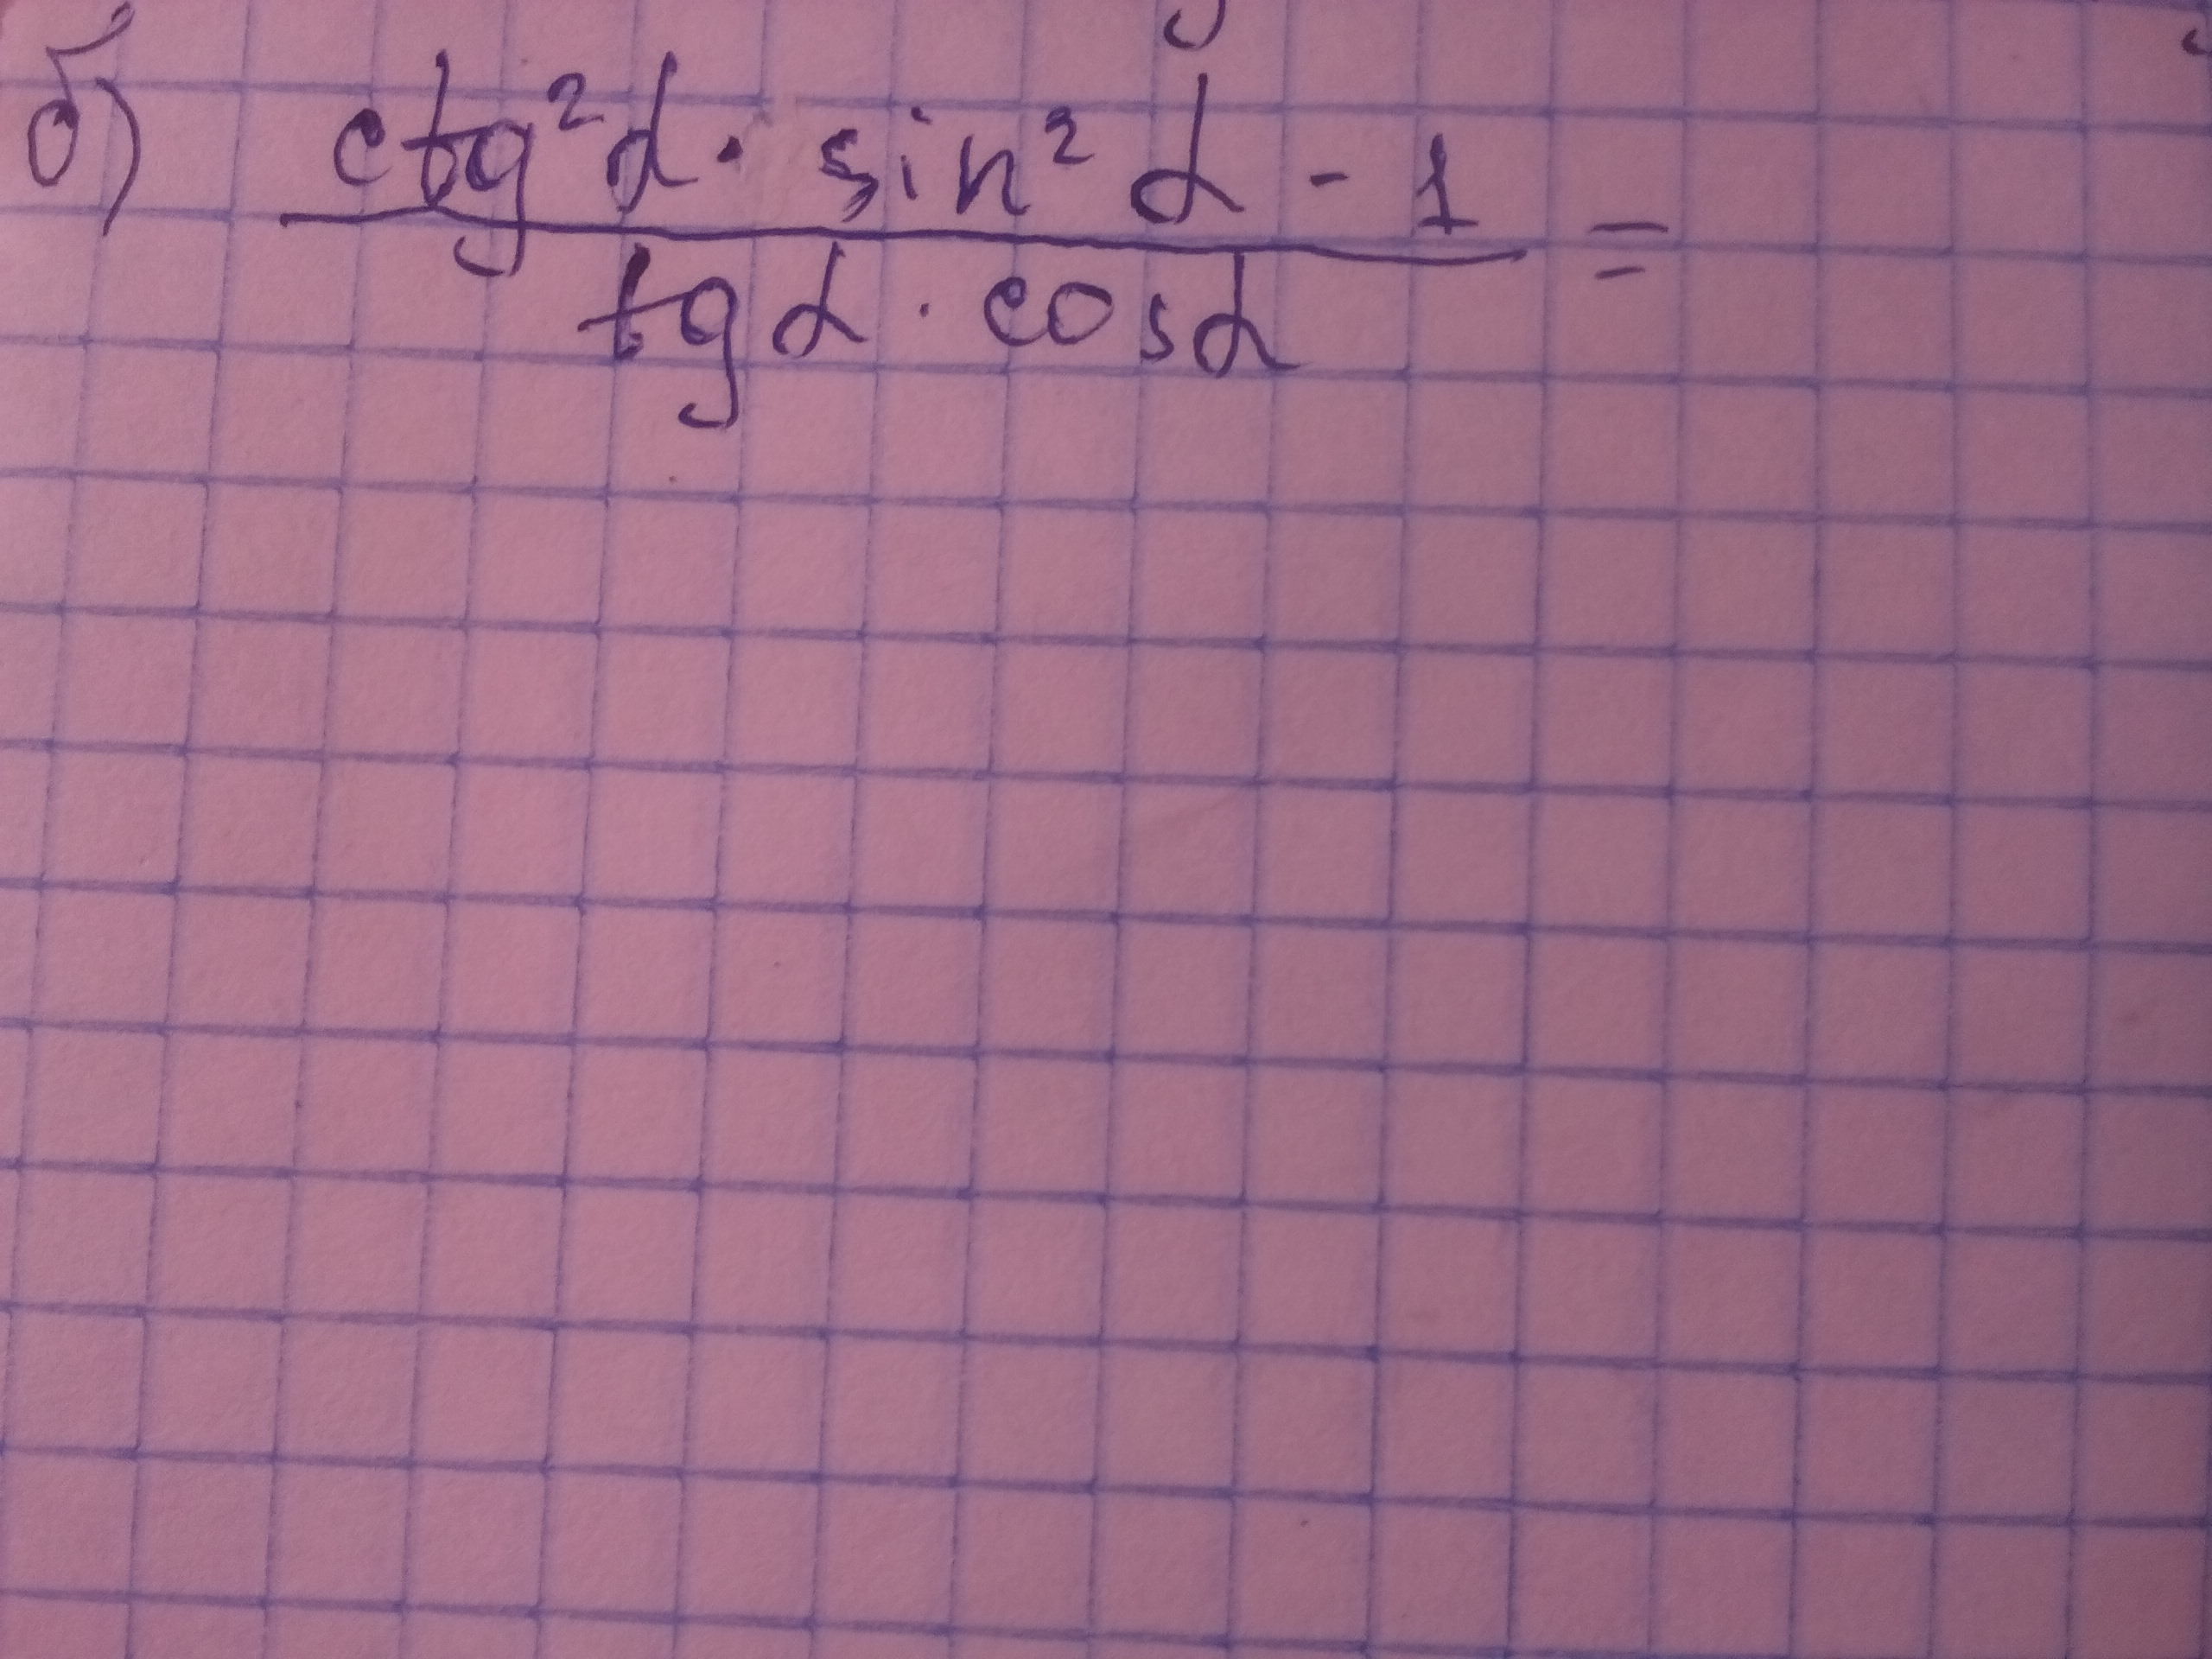 б) ctg²α · sin²α - 1 =
tgα · cosα